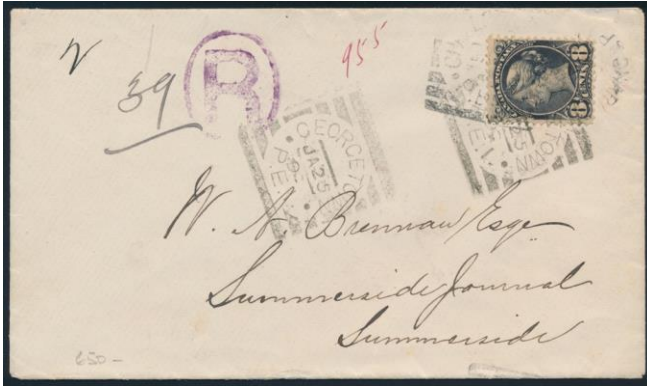 39
R
955
8 8
CENTS
GEORGETOWN
JA 25
P.E.I.
TOWN
25
E.I.
W. A. Brennan Esqr
Summerside Journal
Summerside
650-